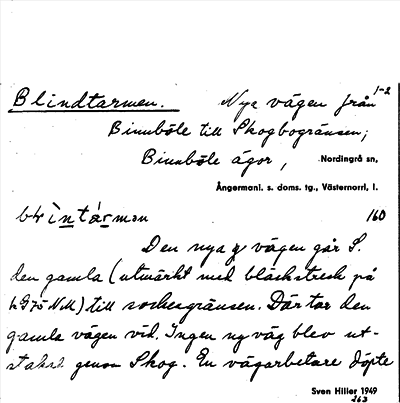 1-2
Blindtarmen. Nya vägen från
Binnböle till Skogbogränsen;
Binnböle ägor, Nordingrå sn,
Ångermanl. s. doms. tg., Västernorrl. l.
160
Den nya vägen går S.
den gamla (utmärkt med bläckstreck på
) till sockengränsen. Där tar den
gamla vägen vid. Ingen ny väg blev ut-
genom Skog. En vägarbetare döpte
Sven Hiller 1949
263